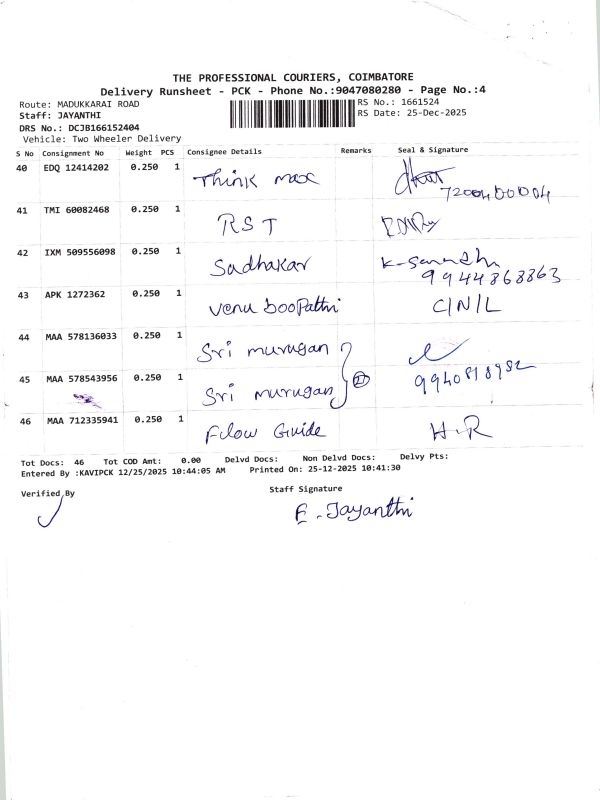 THE PROFESSIONAL COURIERS, COIMBATORE
Delivery Runsheet - PCK - Phone No.:9047080280 - Page No.:4
Route: MADUKKARAI ROAD
RS No.: 1661524
Staff: JAYANTHI
RS Date: 25-Dec-2025
DRS No.: DCJB166152404
Vehicle: Two Wheeler Delivery
S No Consignment No Weight PCS Consignee Details Remarks Seal & Signature
40 EDQ 12414202 0.250 1 Think max
7200400004
41 TMI 60082468 0.250 1 RST
42 IXM 509556098 0.250 1 Sadhakar
9944868863
43 APK 1272362 0.250 1 Venu boopathi C/N/L
44 MAA 578136033 0.250 1 Sri murugan
45 MAA 578543956 0.250 1 Sri murugan
46 MAA 712335941 0.250 1 Fdow Guide H.R
Tot Docs: 46 Tot COD Amt: 0.00 Delvd Docs: Non Delvd Docs: Delvy Pts:
Entered By :KAVIPCK 12/25/2025 10:44:05 AM Printed On: 25-12-2025 10:41:30
Verified By
Staff Signature
E. Jayanthi